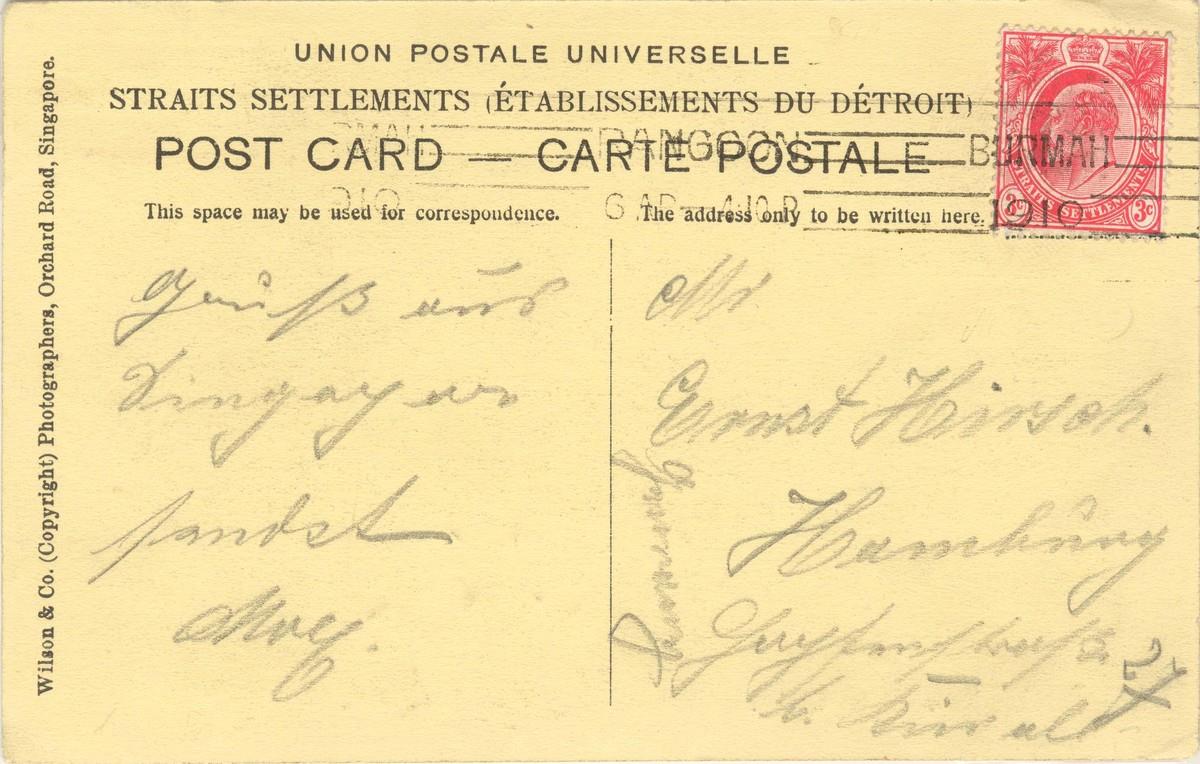 UNION POSTALE UNIVERSELLE
STRAITS SETTLEMENTS (ÉTABLISSEMENTS DU DÉTROIT)
POST CARD — CARTE POSTALE
This space may be used for correspondence.
The address only to be written here.
Wilson & Co. (Copyright) Photographers, Orchard Road, Singapore.
RANGOON BURMAH
1910
STRAITS SETTLEMENTS
3c 3c
Gruß aus
Singapur
sandst
Mr
Ernst Hirsch.
Hamburg
27